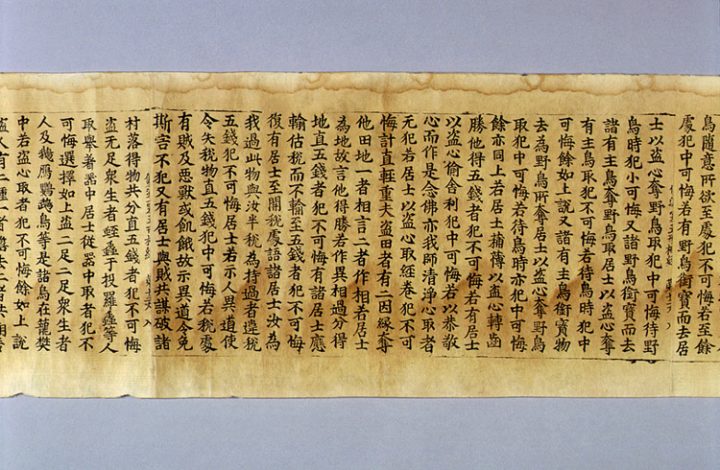 鳥隨意所欲至處犯不可悔若至餘
處犯中可悔若有野鳥銜寶而去居
士以盜心奪野鳥取犯中可悔待野
鳥時犯小可悔又諸野鳥銜寶而去
諸有主鳥奪野鳥取居士以盜心奪
有主鳥取犯不可悔若待鳥時犯中
可悔餘如上說又諸有主鳥銜寶物
去為野鳥所奪居士以盜心奪野鳥
取犯中可悔若待鳥時亦犯中可悔
餘亦同上若居士蒱博以盜心轉齒
勝他得五錢者犯不可悔若有居士
以盜心偷舍利犯中可悔若以恭敬
心而作是念佛亦我師清淨心取者
无犯若居士以盜心取經卷犯不可
悔計直輕重夫盜田者有二因緣奪
他田地一者相言二者作相若居士
為地故言他得勝若作異相過分得
地直五錢者犯不可悔有諸居士應
輸估稅而不輸至五錢者犯不可悔
復有居士至關稅處語諸居士汝為
我過此物與汝半稅為持過者違稅
五錢犯不可悔居士若示人異道使
令失稅物直五錢犯中可悔若稅處
有賊及惡獸或飢餓故示異道令免
斯害不犯又有居士與賊共謀破諸
村落得物共分直五錢者犯不可悔
盜无足眾生者蛭蠡于投羅蠡等人
取舉著器中居士從器中取者犯不
可悔選擇如上盜二足三足眾生者
人及鵝鴈鸚鵡鳥等是諸鳥在籠樊
中若盜心取者犯不可悔餘如上說
盜人有二種一者擔去二者共期